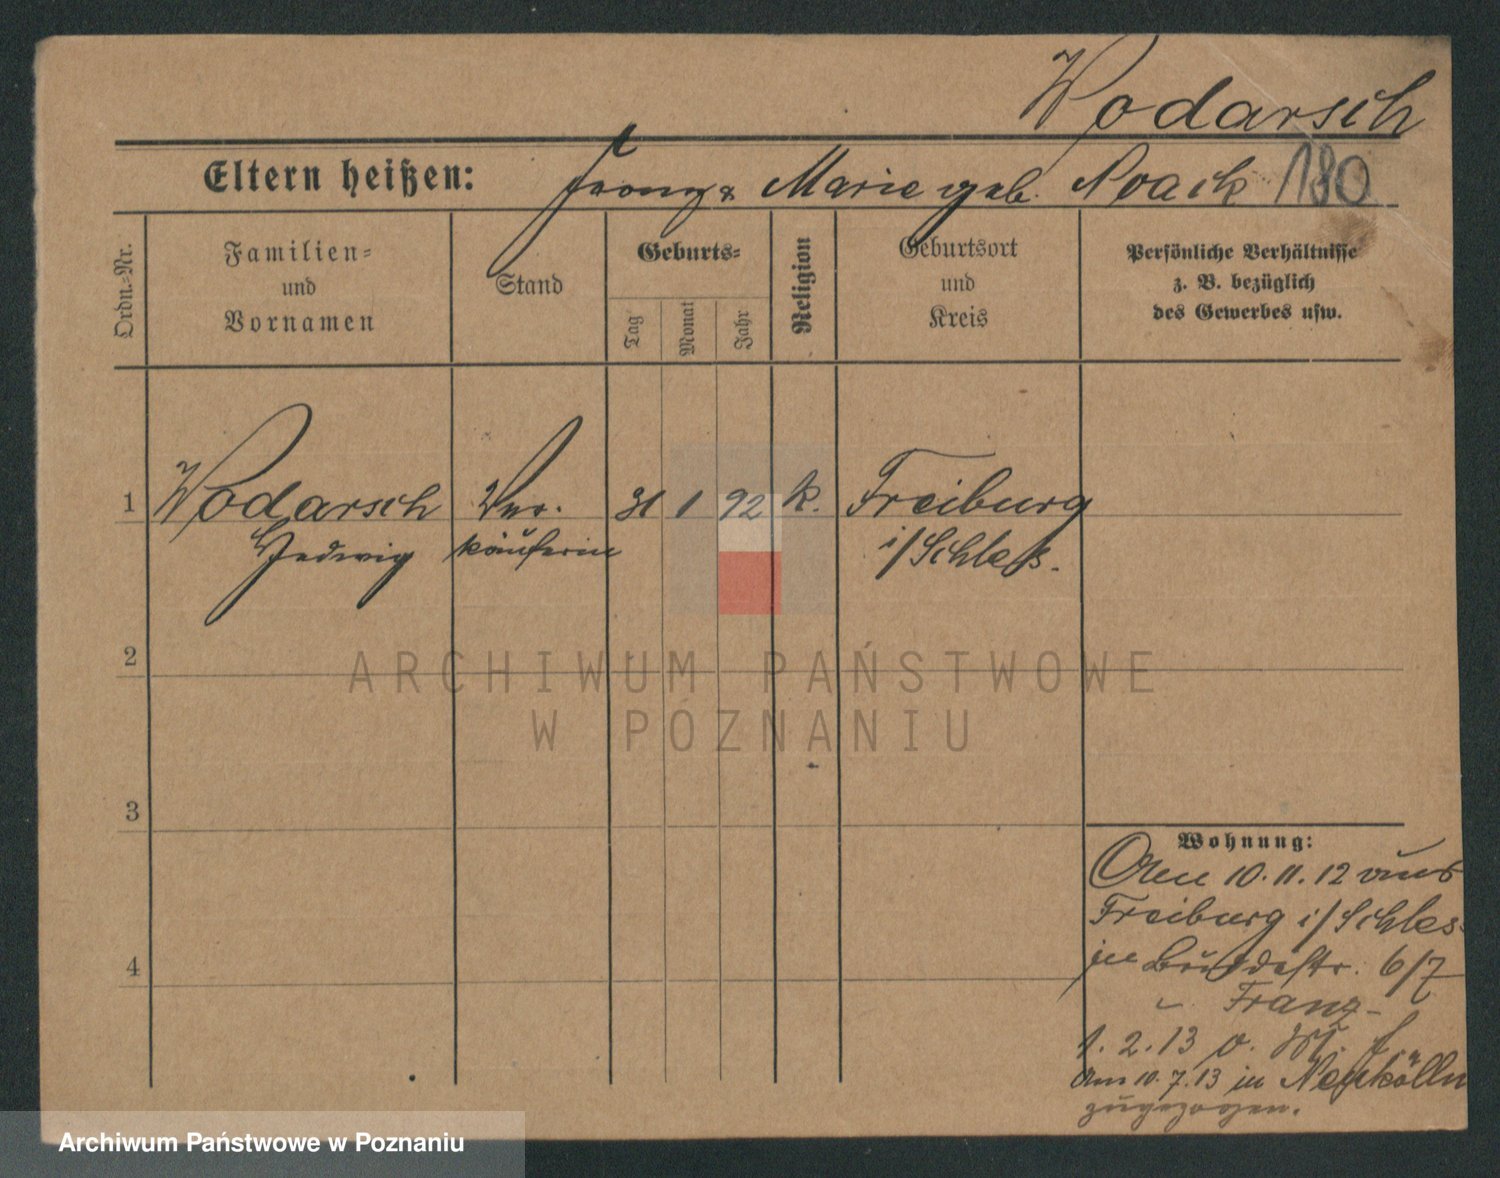 Wodarsch
Eltern heißen: Franz & Marie geb. Noack 180
Ordn.-Nr.
Familien-
und
Vornamen
Stand
Geburts-
Tag
Monat
Jahr
Religion
Geburtsort
und
Kreis
Persönliche Verhältnisse
z. B. bezüglich
des Gewerbes usw.
1 Wodarsch Ver- 31 1 92 k. Freiburg
Hedwig käuferin i/Schles.
2
ARCHIWUM PAŃSTWOWE
W POZNANIU
3
Wohnung:
Am 10.11.12 aus
Freiburg i/Schles.
in 6/7
- Franz -
1.2.13 o.
Am 10.7.13 in Neukölln
zugezogen.
4
Archiwum Państwowe w Poznaniu